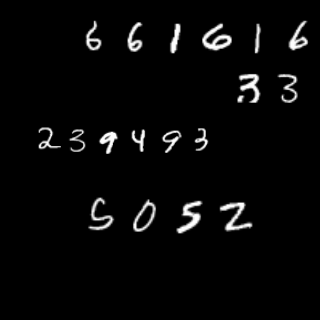 661616
33
239493
5052